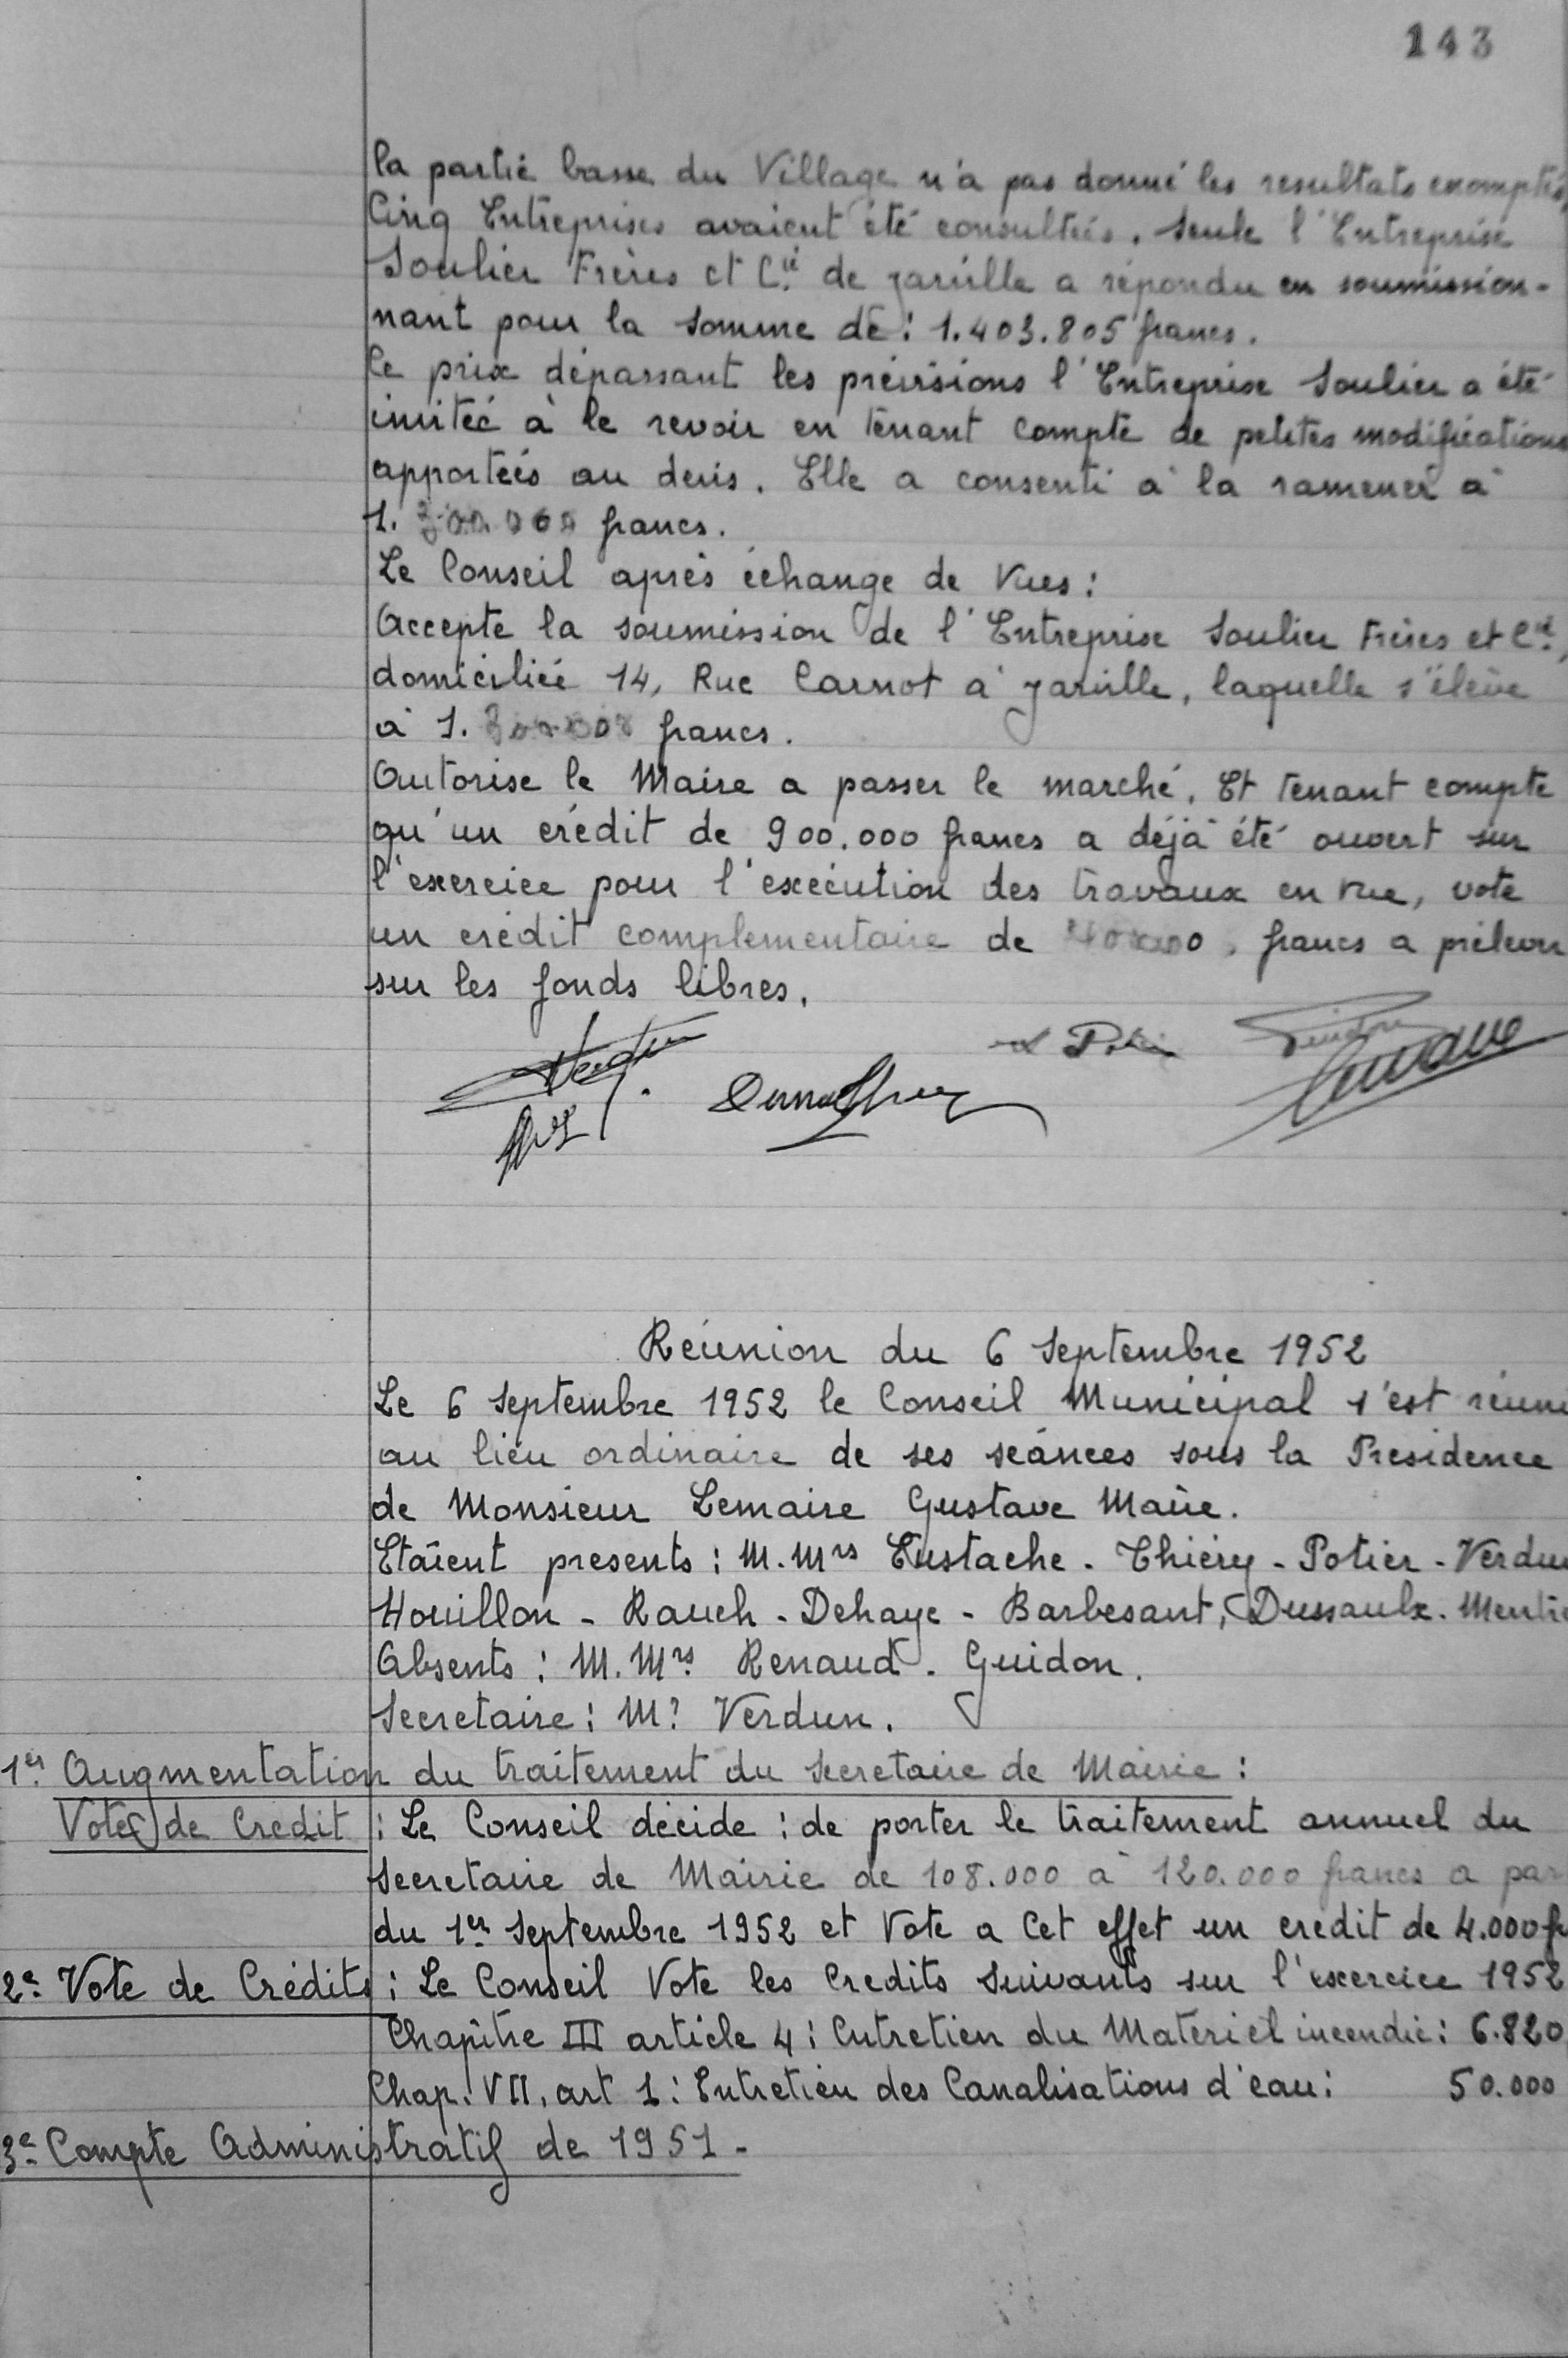 143
la partie basse du Village n'a pas donné les resultats escomptés,
Cinq Entreprises avaient été consultées. Seule l'Entreprise
Soulier Frères et Cie de Jarville a répondu en soumission-
nant pour la somme de : 1.403.805 francs.
Ce prix dépassant les prévisions l'Entreprise Soulier a été
invitée à le revoir en tenant compte de petites modifications
apportées au devis. Elle a consenti à la ramener à
1. francs.
Le Conseil après échange de Vues :
Accepte la soumission de l'Entreprise Soulier Frères et Cie,
domiciliée 14, Rue Carnot à Jarville, laquelle s'élève
à 1. francs.
Autorise le Maire a passer le marché. Et tenant compte
qu'un crédit de 900.000 francs a déjà été ouvert sur
l'exercice pour l'exécution des travaux en vue, vote
un crédit complementaire de francs a prélever
sur les fonds libres.
Réunion du 6 Septembre 1952
Le 6 Septembre 1952 le Conseil Municipal s'est réuni
au lieu ordinaire de ses séances sous la Presidence
de Monsieur Lemaire Gustave Maire.
Etaient presents : M.Mrs Eustache - Thiéry - Potier - Verdun
Houillon - Rauch - Dehaye - Barbesant, Dussaulx - Mentre
Absents : M.Mrs Renaud - Guidon.
Secretaire : Mr Verdun.
1er Augmentation du traitement du Secretaire de Mairie :
Votes de Credit : Le Conseil décide : de porter le traitement annuel du
Secretaire de Mairie de 108.000 à 120.000 francs a par
du 1er Septembre 1952 et Vote a Cet effet un credit de 4.000 f
2e Vote de Crédits : Le Conseil Vote les Credits Suivants sur l'exercice 1952
Chapître III article 4 : Entretien du Matériel incendie : 6.820
Chap. VII, art 1 : Entretien des Canalisations d'eau : 50.000
3e Compte Administratif de 1951 -